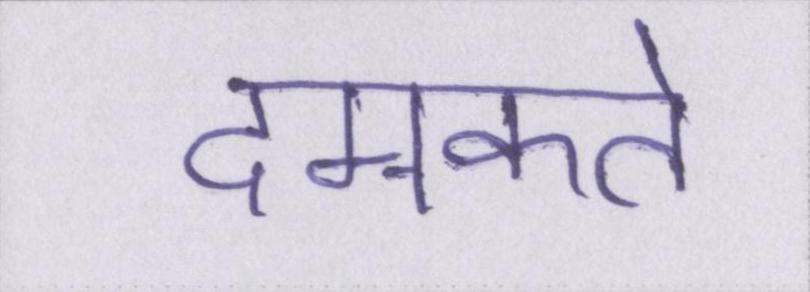 दमकते